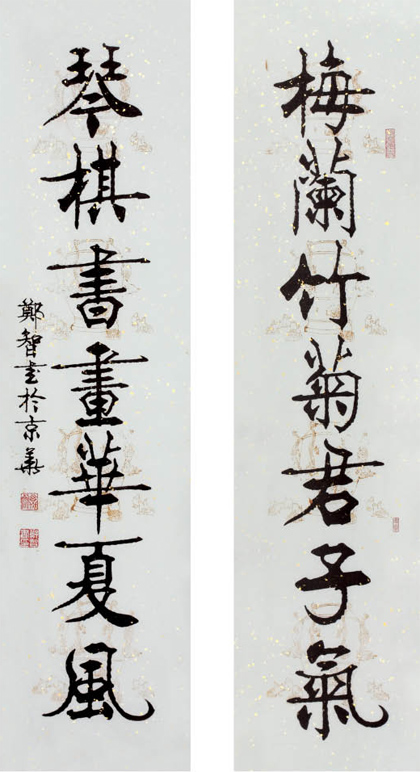 梅蘭竹菊君子氣
琴棋書畫華夏風
鄭智書於京華